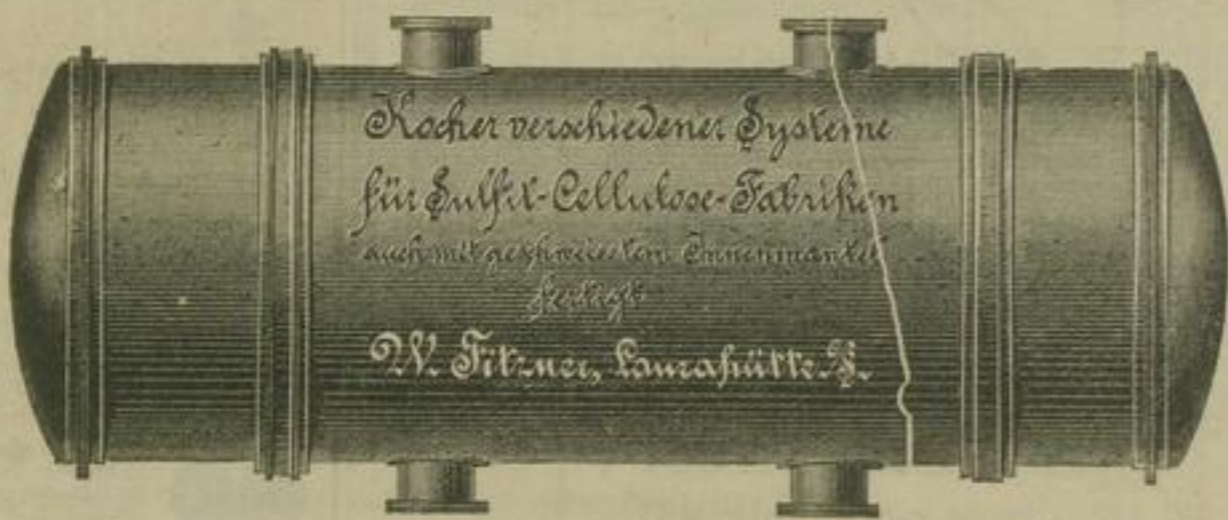 Kocher verschiedener Systeme
für Sulfit-Cellulose-Fabriken
auch mit geschweisstem Innenmantel
fertigt
W. Fitzner, Laurahütte O/S.